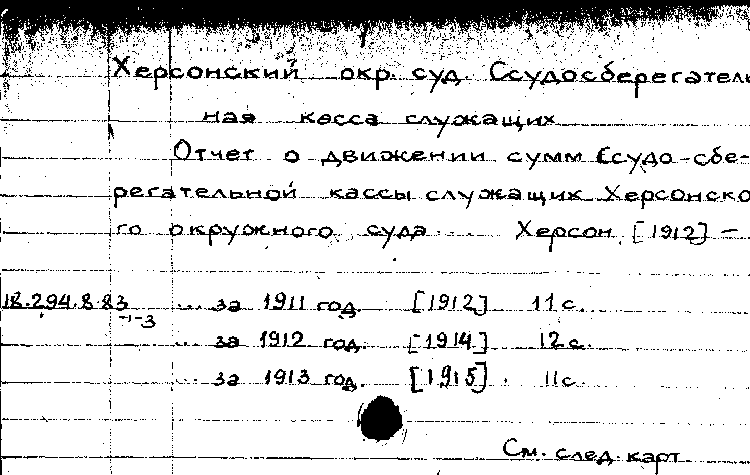 Херсонский окр. суд. Ссудосберегатель
ная касса служащих
Отчет о движении сумм Ссудо-сбе-
регательной кассы служащих Херсонско
го окружного суда ... Херсон, [1912] –
18.294.8.83 ... за 1911 год. [1912] 11 с.
-1-3
... за 1912 год. [1914] 12 с.
... за 1913 год. [1915]. 11 с
См. след. карт.